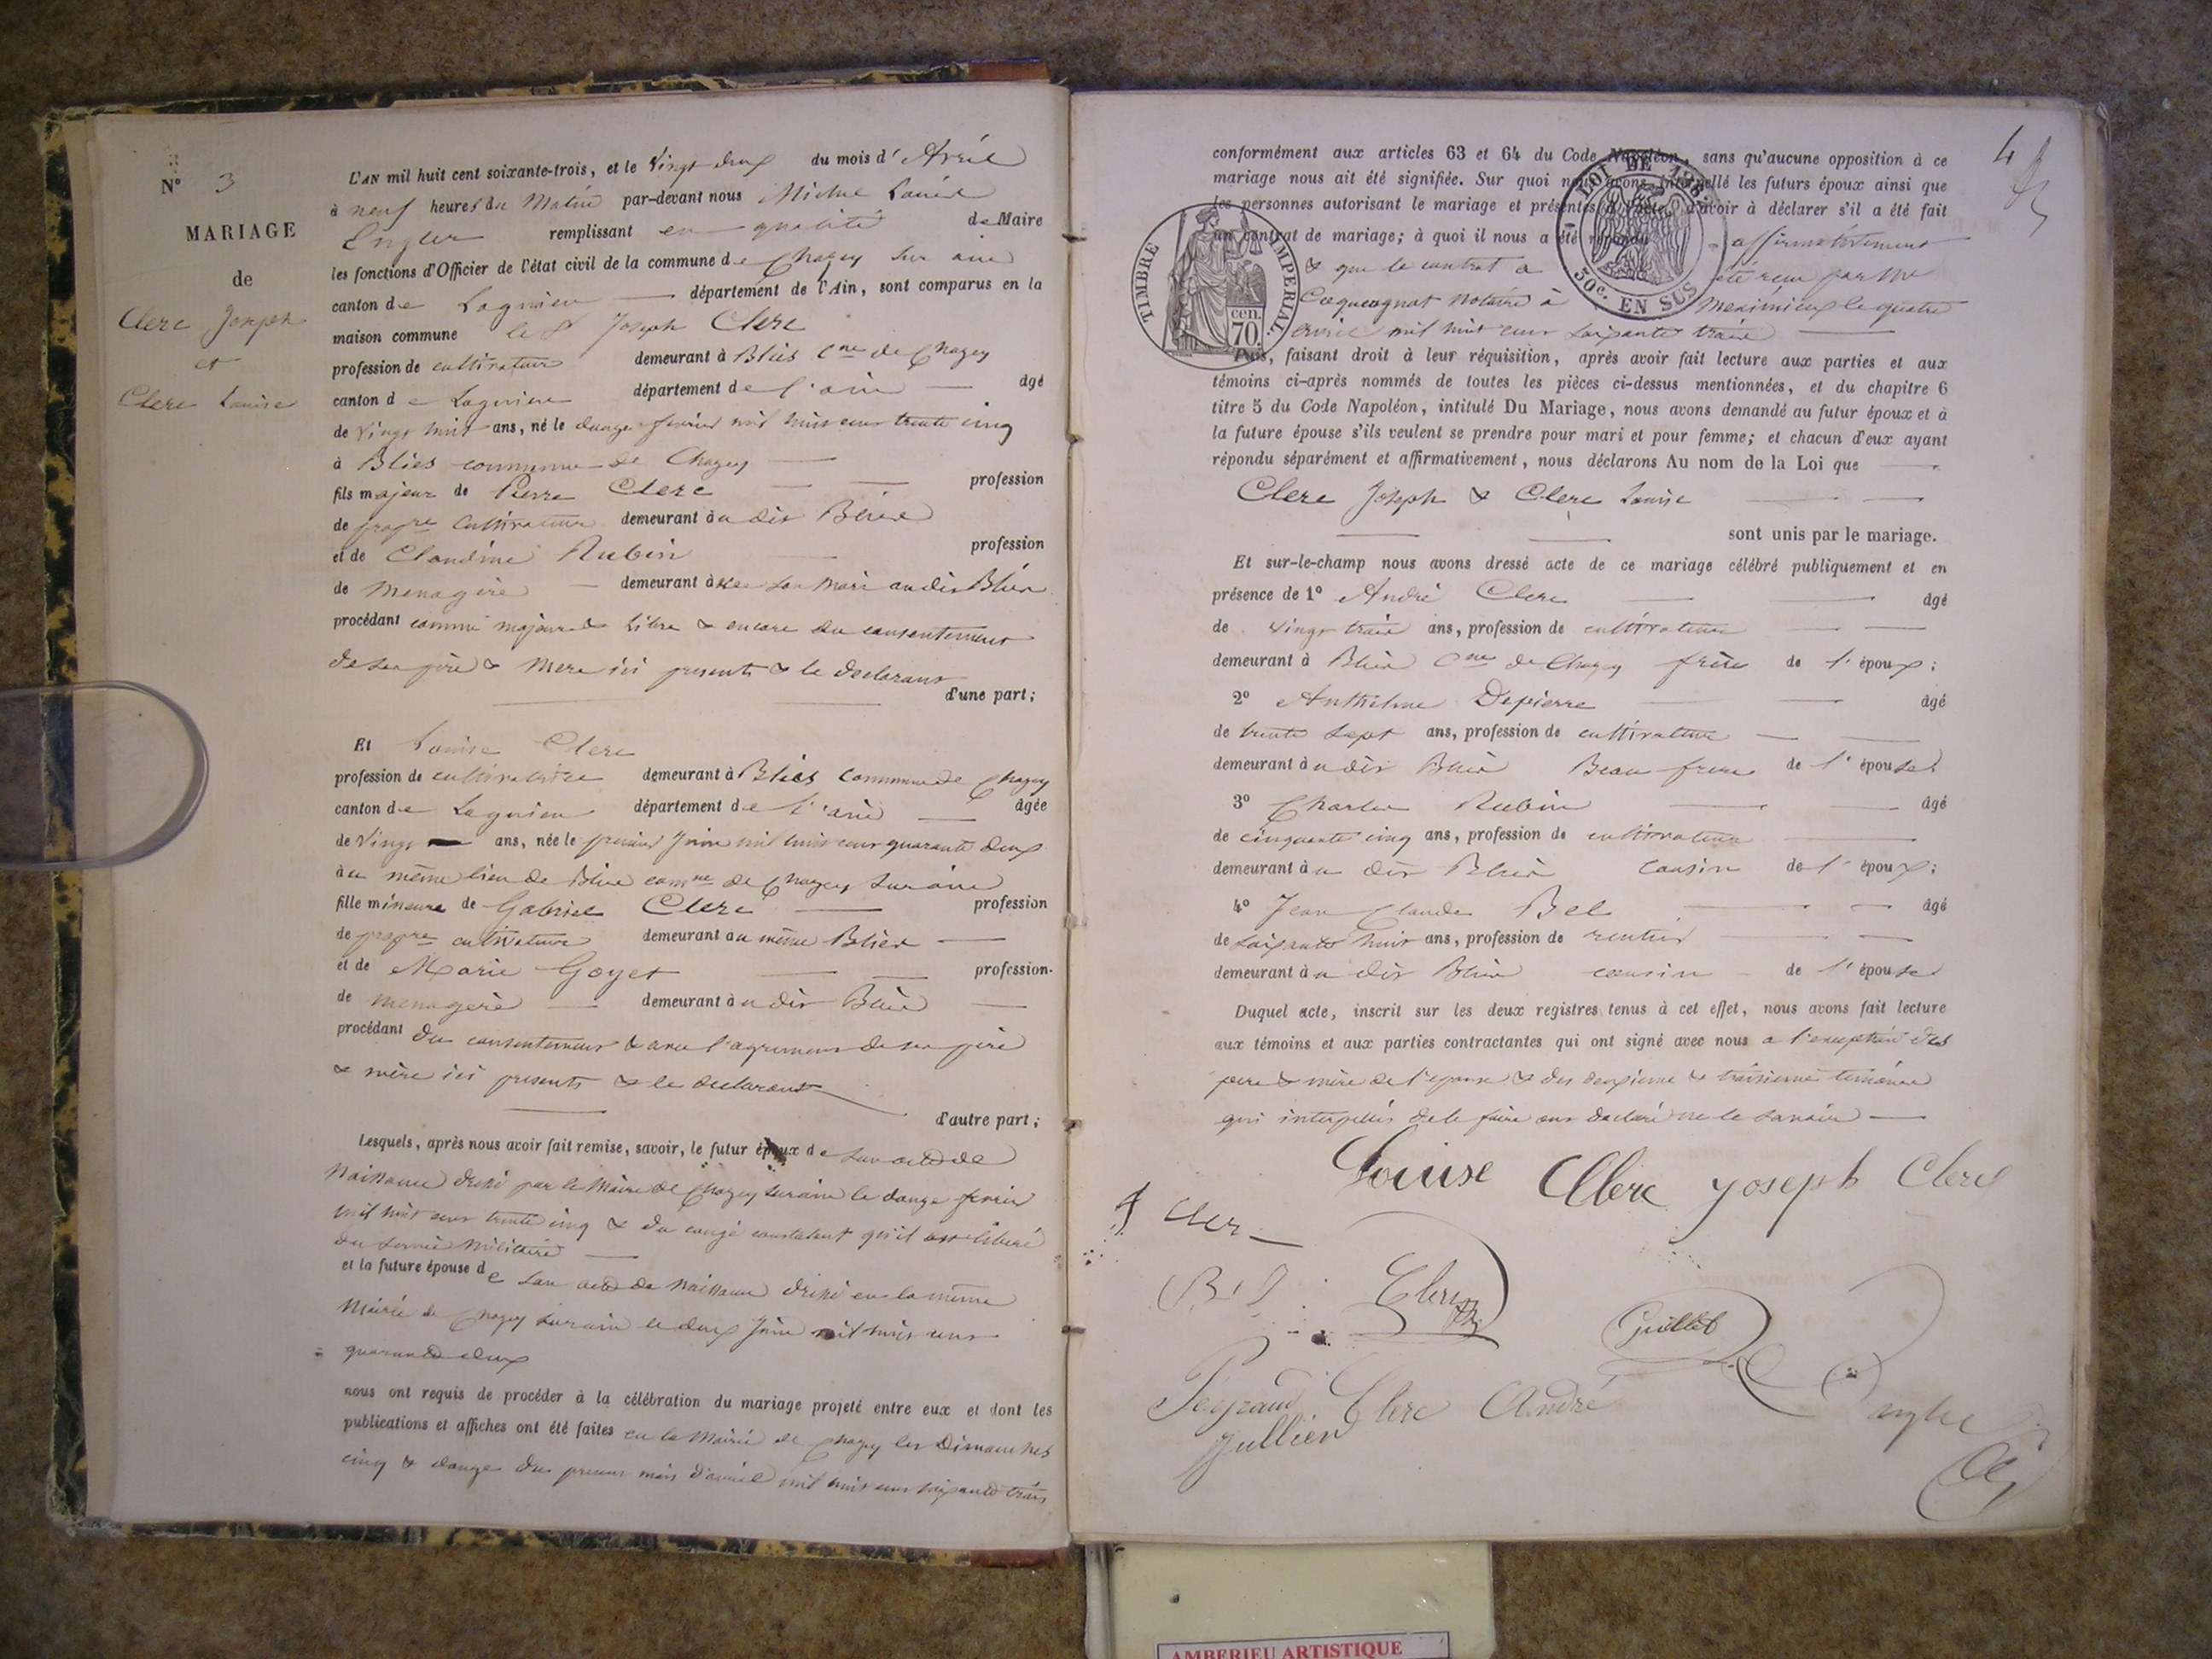 N° 3
MARIAGE
de
Clerc Joseph
et
Clerc Louise
L'AN mil huit cent soixante-trois, et le Vingt deux du mois d'Avril
à neuf heures du Matin par-devant nous Michel Louis
remplissant en qualité de Maire
les fonctions d'Officier de l'état civil de la commune de Chazey sur ain
canton de Lagnieu département de l'Ain, sont comparus en la
maison commune le Sr Joseph Clerc
profession de cultivateur demeurant à Bliès Cne de Chazey
canton de Lagnieu département de l'ain âgé
de Vingt huit ans, né le douze fevrier mil huit cent trente cinq
à Bliès commune de Chazey
fils majeur de Pierre Clerc profession
de propre cultivateur demeurant au dit Bliès
et de Claudine Rubin profession
de Menagère demeurant avec son mari au dit Bliès
procédant comme majeur & libre & encore du consentement
de ses père & Mere ici presents & le declarant
d'une part ;
Et Louise Clerc
profession de cultivatrice demeurant à Bliès Commune de Chazey
canton de Lagnieu département de l'ain âgée
de Vingt ans, née le premier Juin mil huit cent quarante deux
au même lieu de Bliès comne de Chazey sur ain
fille mineure de Gabriel Clerc profession
de propre cultivateur demeurant au même Bliès
et de Marie Goyet profession
de menagère demeurant au dit Bliès
procédant du consentement & avec l'agrement de ses père
& mère ici presents & le declarant
d'autre part ;
Lesquels, après nous avoir fait remise, savoir, le futur époux de son acte de
Naissance dressé par le Maire de Chazey sur ain le douze fevrier
mil huit cent trente cinq & du congé constatant qu'il est libéré
du service Militaire
et la future épouse de son acte de Naissance dressé en la même
Mairie de Chazey sur ain le deux Juin mil huit cent
quarante deux
nous ont requis de procéder à la célébration du mariage projeté entre eux et dont les
publications et affiches ont été faites en la Mairie de Chazey les Dimanches
cinq & douze du present mois d'avril mil huit cent soixante trois
4
conformément aux articles 63 et 64 du Code Napoléon, sans qu'aucune opposition à ce
mariage nous ait été signifiée. Sur quoi nous avons interpellé les futurs époux ainsi que
les personnes autorisant le mariage et présentes à l'acte, d'avoir à déclarer s'il a été fait
un contrat de mariage ; à quoi il nous a été répondu affirmativement
& que le contrat a été reçu par Me
Cocqueugnot Notaire à Meximieux le quatre
avril mil huit cent soixante trois
TIMBRE IMPERIAL
cen.
70.
LOI DE 186
50c. EN SUS
Puis, faisant droit à leur réquisition, après avoir fait lecture aux parties et aux
témoins ci-après nommés de toutes les pièces ci-dessus mentionnées, et du chapitre 6
titre 5 du Code Napoléon, intitulé Du Mariage, nous avons demandé au futur époux et à
la future épouse s'ils veulent se prendre pour mari et pour femme ; et chacun d'eux ayant
répondu séparément et affirmativement, nous déclarons Au nom de la Loi que
Clerc Joseph & Clerc Louise
sont unis par le mariage.
Et sur-le-champ nous avons dressé acte de ce mariage célébré publiquement et en
présence de 1° André Clerc âgé
de Vingt trois ans, profession de cultivateur
demeurant à Bliès Cne de Chazey frère de l'époux ;
2° Anthelme Depierre âgé
de trente sept ans, profession de cultivateur
demeurant au dit Bliès Beau frere de l'épouse
3° Charles Rubin âgé
de cinquante cinq ans, profession de cultivateur
demeurant au dit Bliès cousin de l'époux ;
4° Jean Claude Bel âgé
de soixante huit ans, profession de rentier
demeurant au dit Bliès cousin de l'épouse
Duquel acte, inscrit sur les deux registres tenus à cet effet, nous avons fait lecture
aux témoins et aux parties contractantes qui ont signé avec nous a l'exception des
pere & mère de l'epouse & des deuxieme & troisieme temoins
qui interpellés de le faire ont declaré ne le savoir
Louise Clerc Joseph Clerc
Bel Clerc
Guillet
Peysand Clerc André
Jullien
AMBERIEU ARTISTIQUE